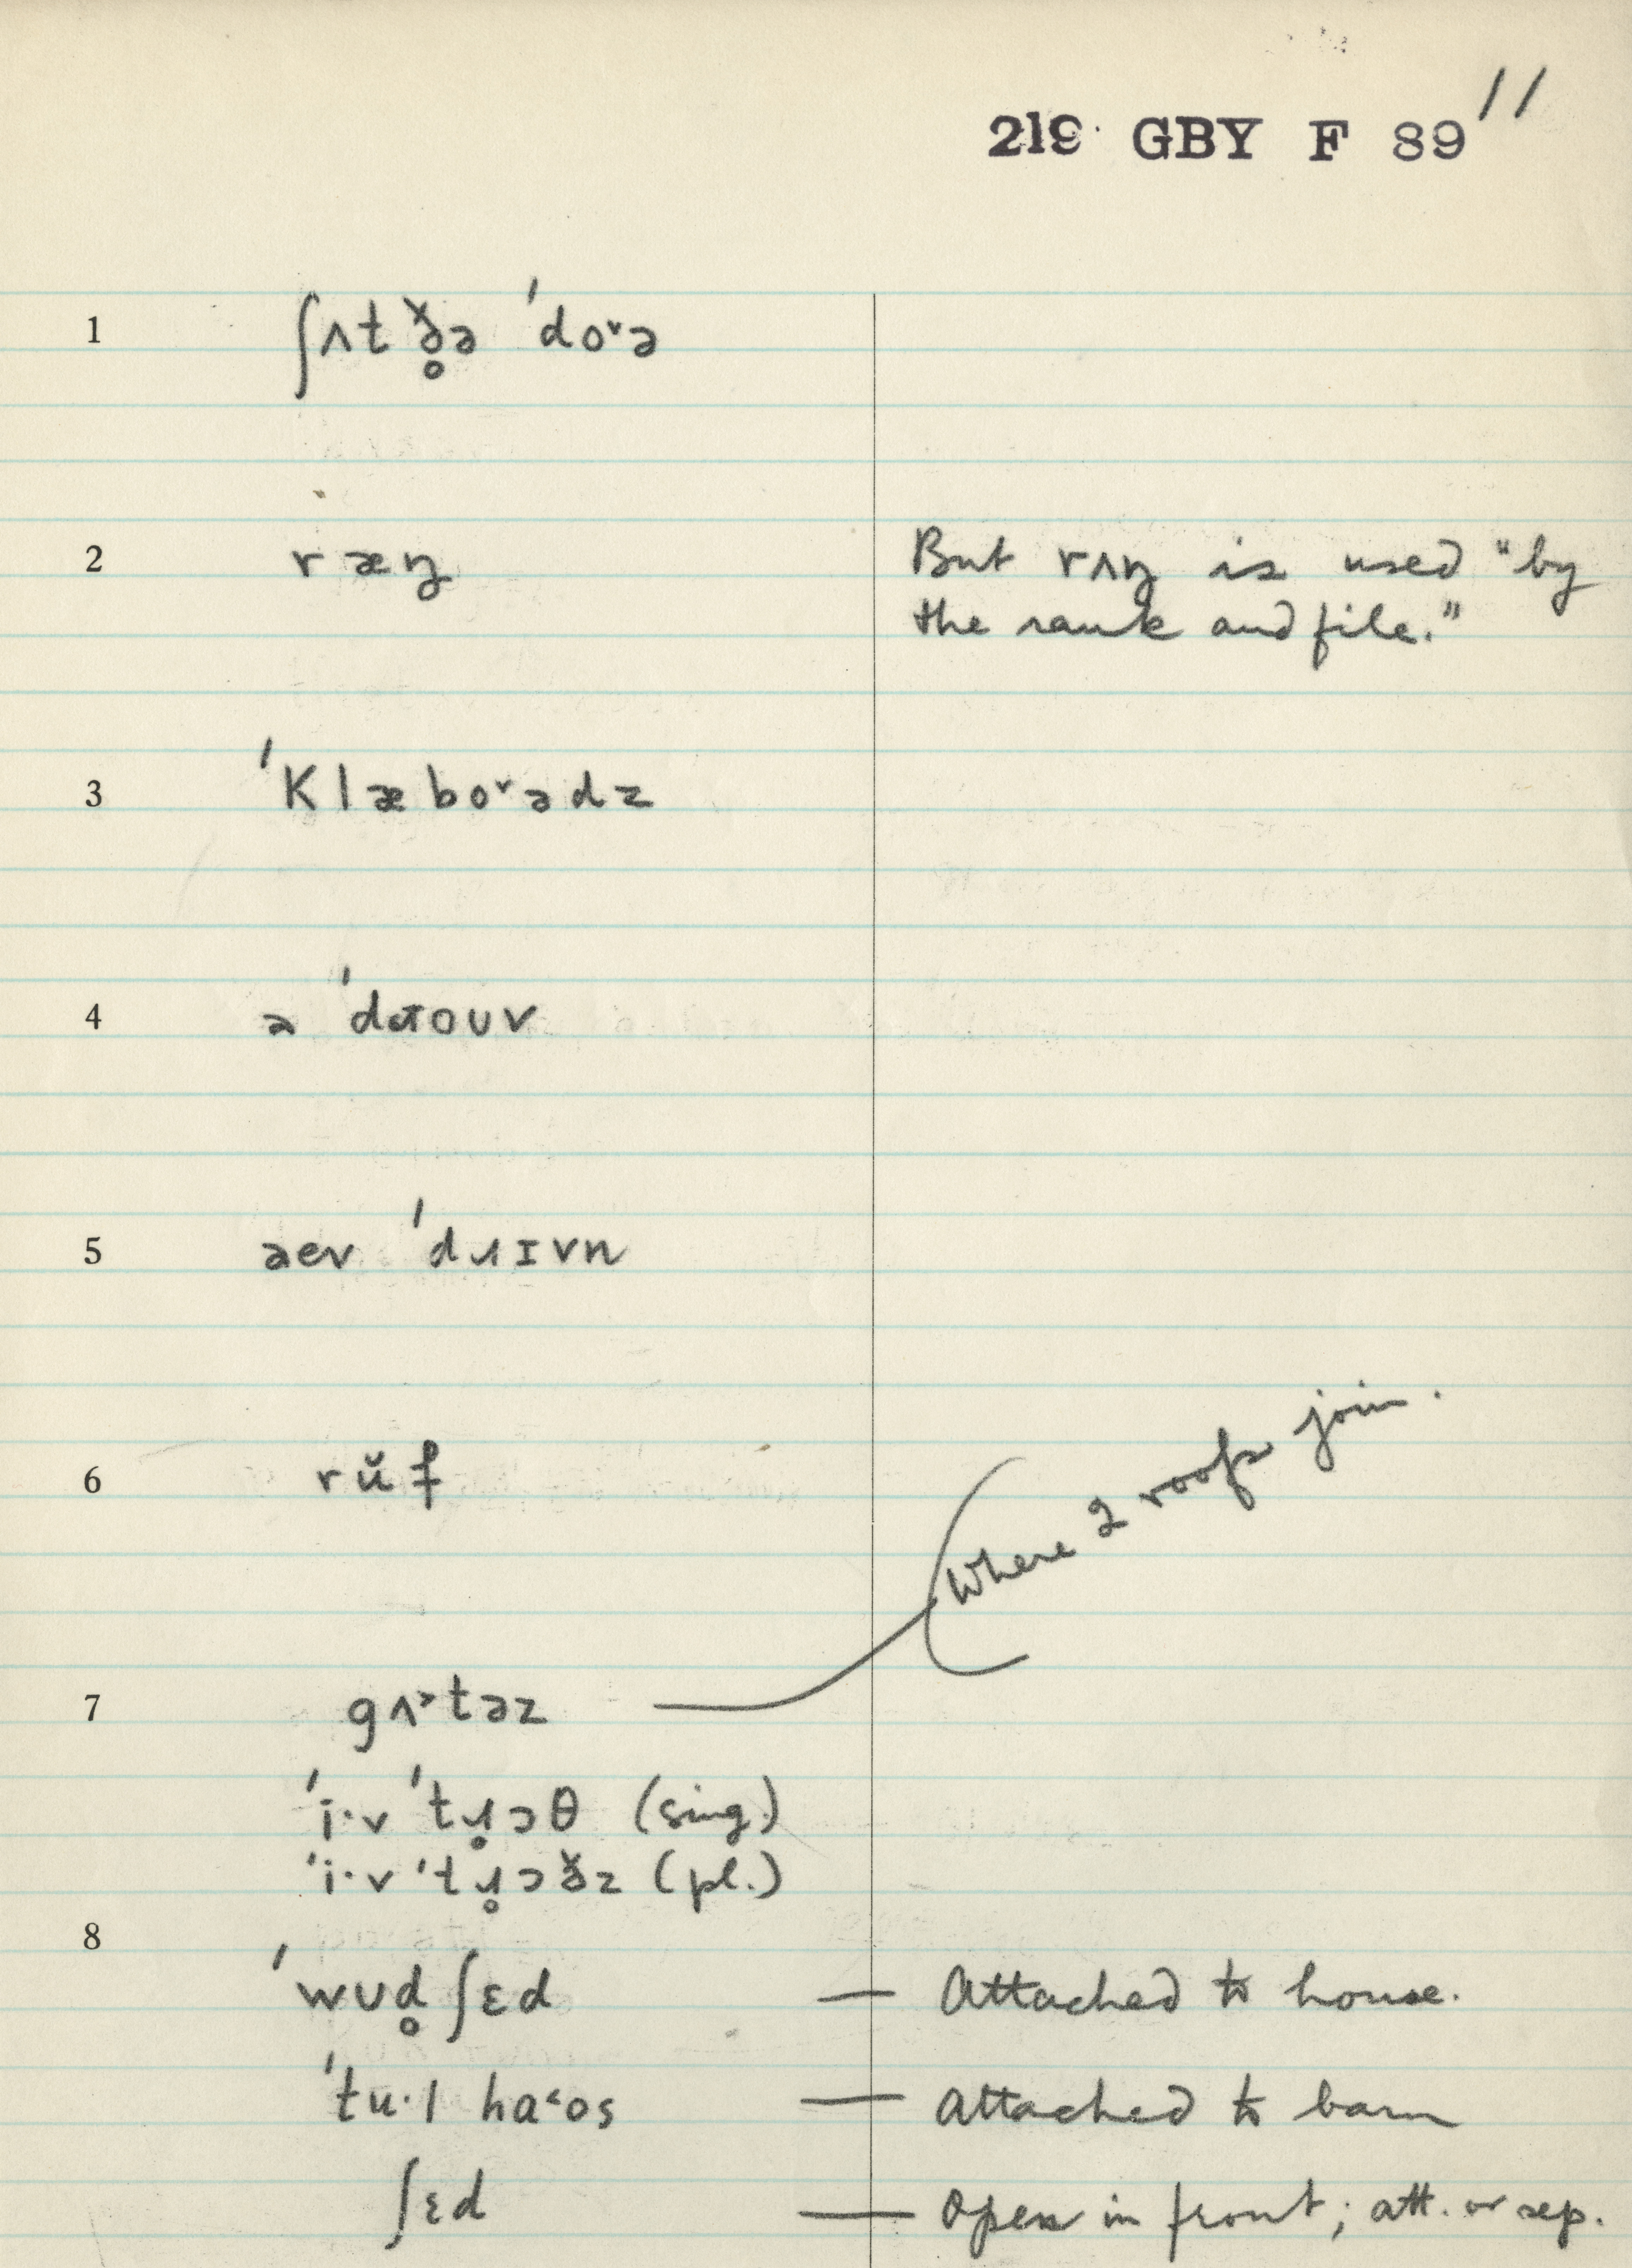 219 GBY F 89 11
1 ʃʌt ð̥ə ˈdo˅ə
2 ræŋ But rʌŋ is used "by
the rank and file."
3 ˈklæbo˅ədz
4 ə
5 əev ˈdɹɪvn
6 rŭf
Where 2 roofs join.
7 gʌ˃təz
ˈi·v ˈtɹ̥ɔθ (sing.)
ˈi·v ˈtɹ̥ɔðz (pl.)
8
ˈwʊd̥ ʃɛd — Attached to house.
ˈtu·l ha˂os — Attached to barn
ʃɛd — Open in front; att. or sep.